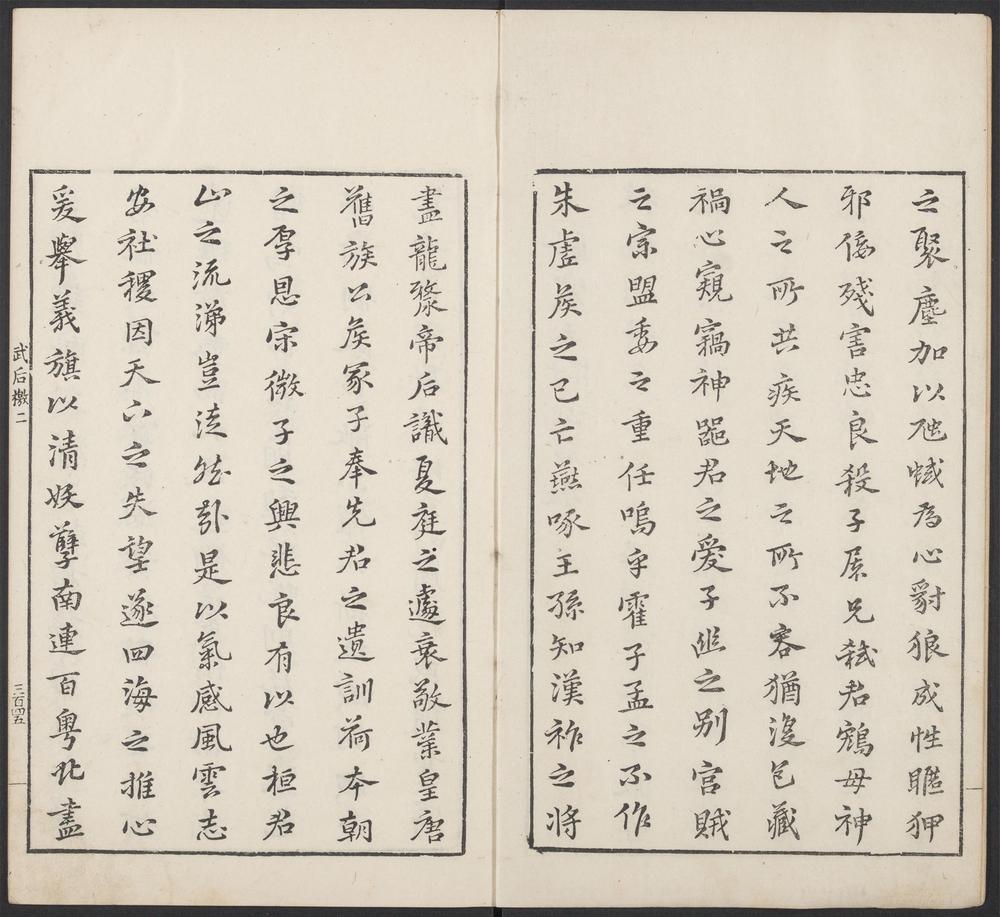 之聚塵加以虺蜮為心豺狼成性暱狎
邪佞殘害忠良殺子屠兄弒君鴆母神
人之所共疾天地之所不容猶復包藏
禍心窺竊神器君之愛子幽之別宮賊
之宗盟委之重任嗚乎霍子孟之不作
朱虛侯之已亡燕啄王孫知漢祚之將
盡龍漦帝后識夏庭之遽衰敬業皇唐
舊族公侯冢子奉先君之遺訓荷本朝
之厚恩宋微子之興悲良有以也桓君
山之流涕豈徒然哉是以氣感風雲志
安社稷因天下之失望遂四海之推心
爰舉義旗以清妖孽南連百粵北盡
武后檄二
三百四五